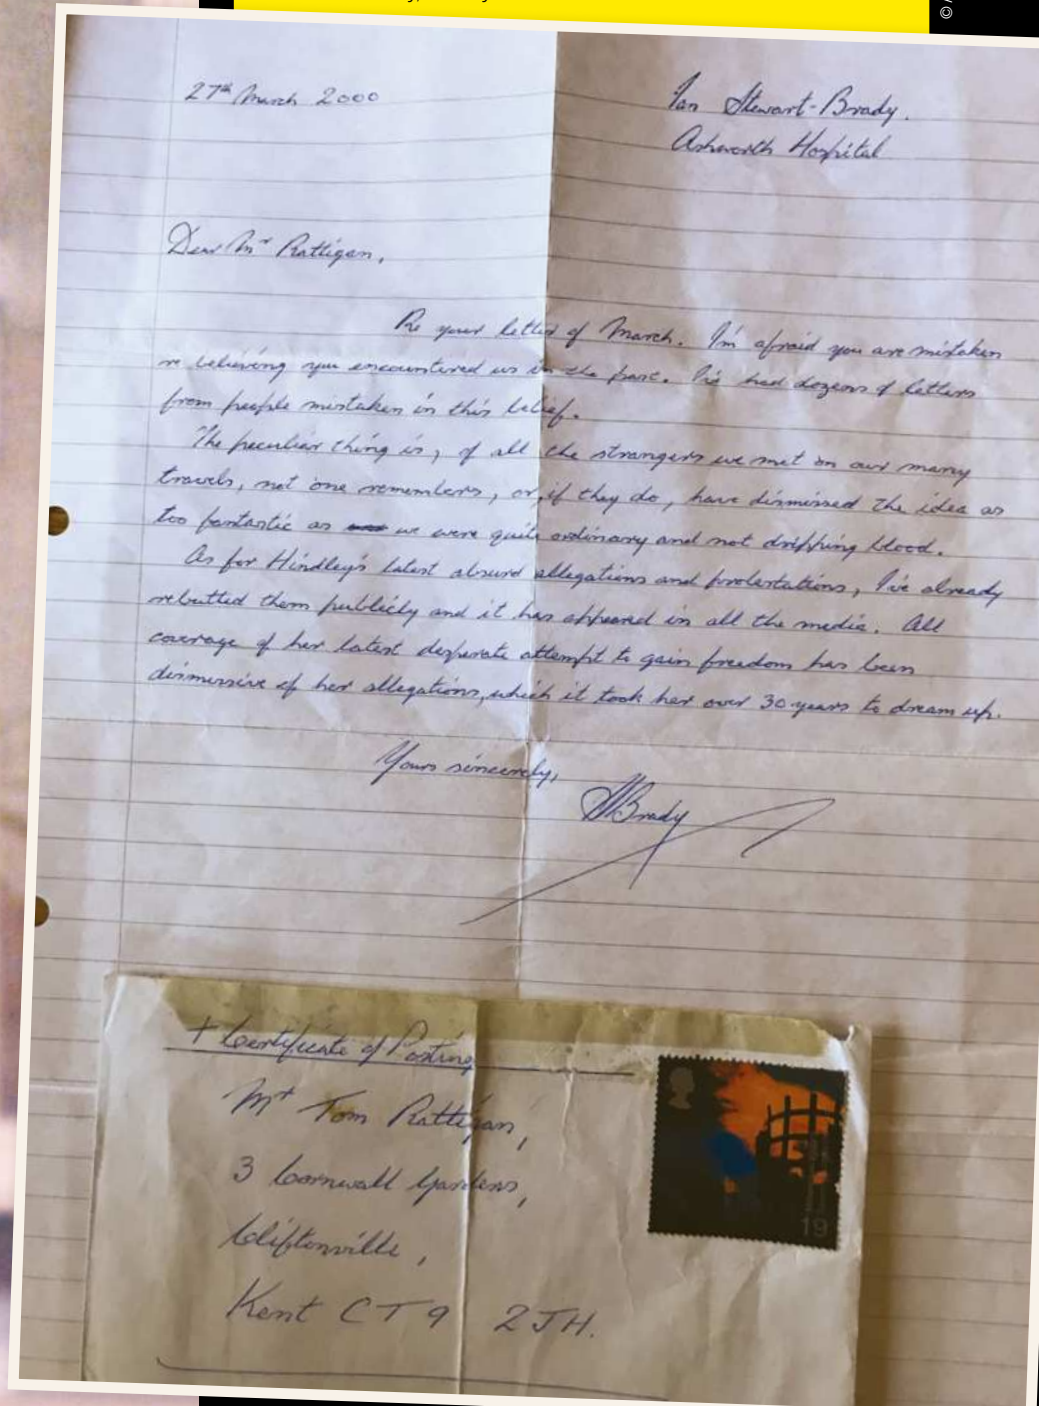 27th March 2000
Ian Stewart-Brady.
Ashworth Hospital
Dear Mr Rattigan,
Re your letter of March. I'm afraid you are mistaken
re believing you encountered us in the past. I've had dozens of letters
from people mistaken in this belief.
The peculiar thing is, of all the strangers we met on our many
travels, not one remembers, or, if they do, have dismissed the idea as
too fantastic as we were quite ordinary and not dripping blood.
As for Hindley's latest absurd allegations and protestations, I've already
rebutted them publicly and it has appeared in all the media. All
coverage of her latest desperate attempt to gain freedom has been
dismissive of her allegations, which it took her over 30 years to dream up.
Yours sincerely,
IBrady
+ Certificate of Posting
Mr Tom Rattigan,
3 Cornwall Gardens,
Cliftonville,
Kent CT9 2JH.
19
©